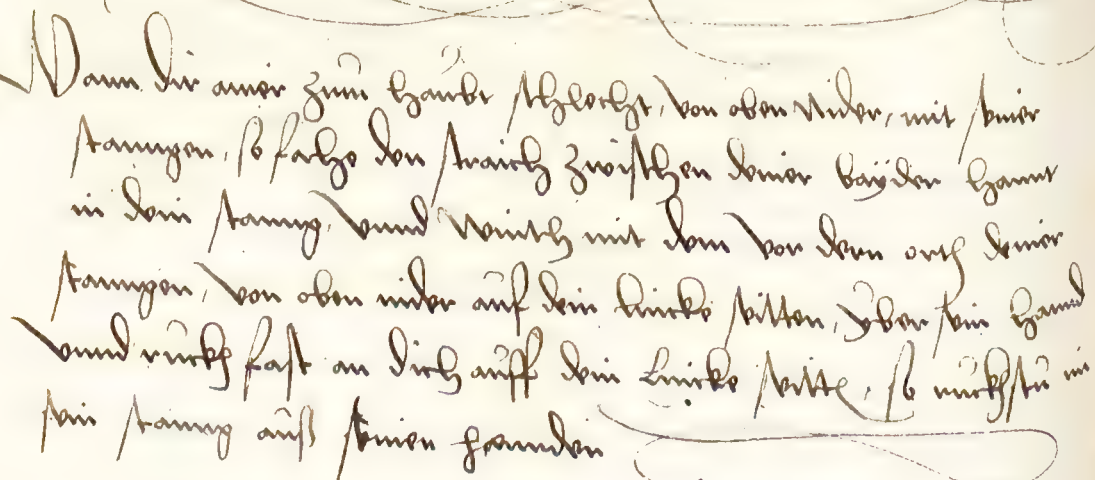 Wann dir ainer zum haubt schlecht, von oben nider, mit seiner
stanngen, so fache den straich zwischen deiner bayder hannt
in dein stanng, vnnd winth mit dem vordern orth deiner
stanngen, von oben nider auf dein lincke seitten, yber sein hannd
vnnd ruckh fast an dich auff dein lincke seitte, so ruckhstu im
sein stanng auß seinen hannden